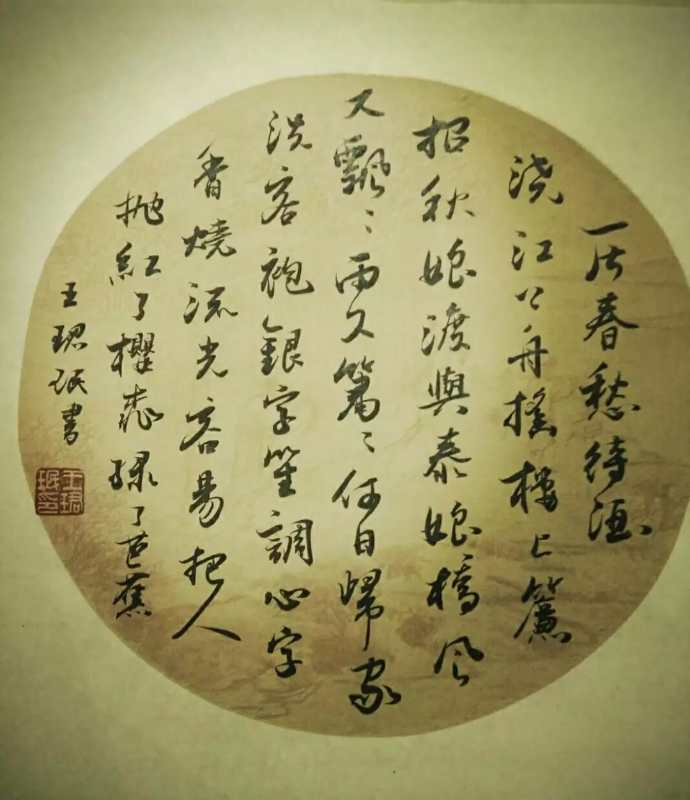 一片春愁待酒
浇江上舟摇楼上簾
招秋娘渡與泰娘橋风
又飄〻雨又蕭〻何日歸家
洗客袍銀字笙調心字
香燒流光容易把人
抛紅了櫻桃緑了芭蕉
王珺珉書
王珺珉印